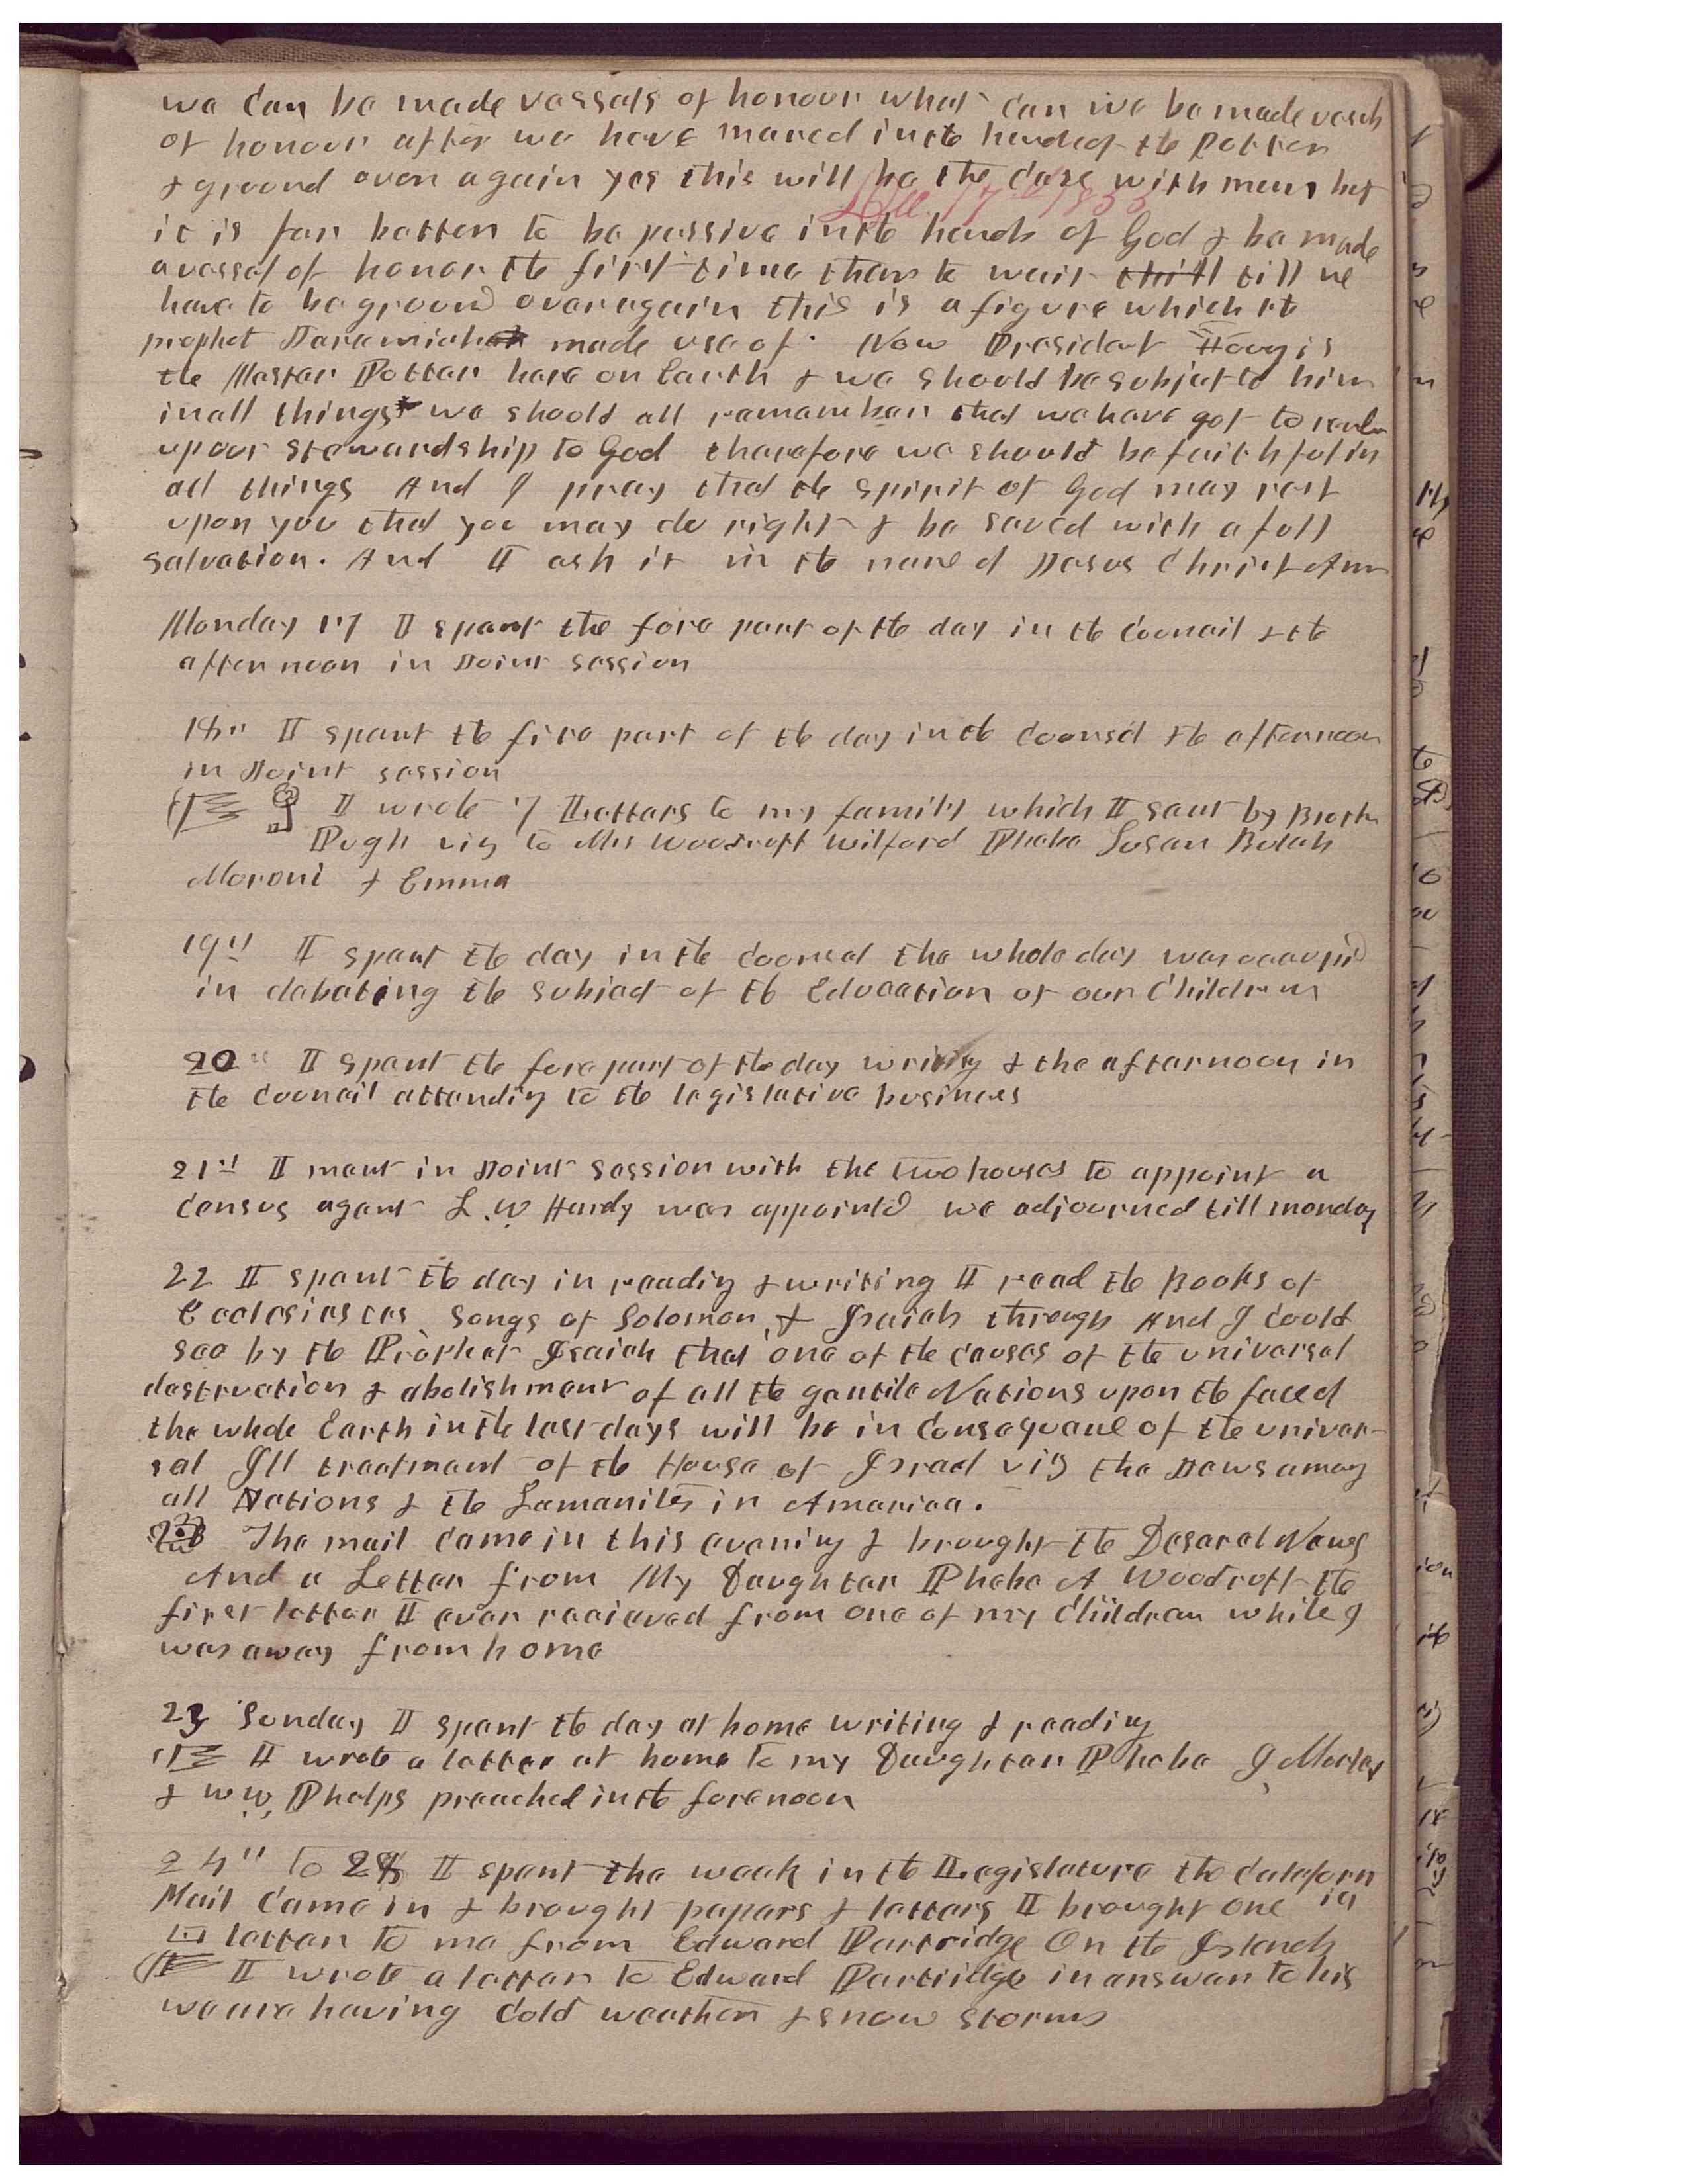 we can be made vessels of honour what can we be made vessels
of honour after we have mared in the hands of the Potter
& ground over again yes this will be the case with many but
Dec 17th 1855
it is far better to be passive in the hands of God & be made
a vessel of honor the first time than to wait till we
have to be ground over again this is a figure which the
prophet Jeremiah made use of. Now President Young is
the Master Potter here on Earth & we should be subject to him
in all things we should all remember that we have got to render
up our stewardship to God therefore we should be faithful in
all things And I pray that the spirit of God may rest
upon you that you may do right & be saved with a full
salvation. And I ask it in the name of Jesus Christ Amen
Monday 17 I spent the fore part of the day in the Council & the
afternoon in Joint session
18th I spent the fore part of the day in the Council the afternoon
in Joint session
I wrote 7 Letters to my family which I sent by Brother
Pugh viz to Mrs Woodruff Wilford Phebe Susan Bulah
Moroni & Emma
19th I spent the day in the Council the whole day was occupied
in debating the subject of the Education of our Children
20th I spent the fore part of the day writing & the afternoon in
the Council attending to the legislative business
21st I ment in Joint Session with the two houses to appoint a
Census agent L. W Hardy was appointed we adjourned till monday
22 I spent the day in reading & writing I read the Books of
Ecclesiastes Songs of Solomon, & Isaiah through And I could
see by the Prophet Isaiah that one of the causes of the universal
destruction & abolishment of all the gentile Nations upon the face of
the whole Earth in the last days will be in Consequence of the univer-
sal Ill treatment of the House of Israel viz the Jews among
all Nations & the Lamanites in America.
The mail came in this evening & brought the Deseret News
And a Letter from My Daughter Phebe A Woodruff the
first letter I ever recieved from one of my Children while I
was away from home
23 Sunday I spent the day at home writing & reading
I wrote a letter at home to my Daughter Phebe I Morley
& W W, Phelps preached in the forenoon
24th to 28 I spent the week in the Legislature the Californ
ia
Mail came in & brought papers & letters I brought one
letter to me from Edward Partridge On the Islands
I wrote a letter to Edward Partridge in answer to his
we are having cold weather & snow storms